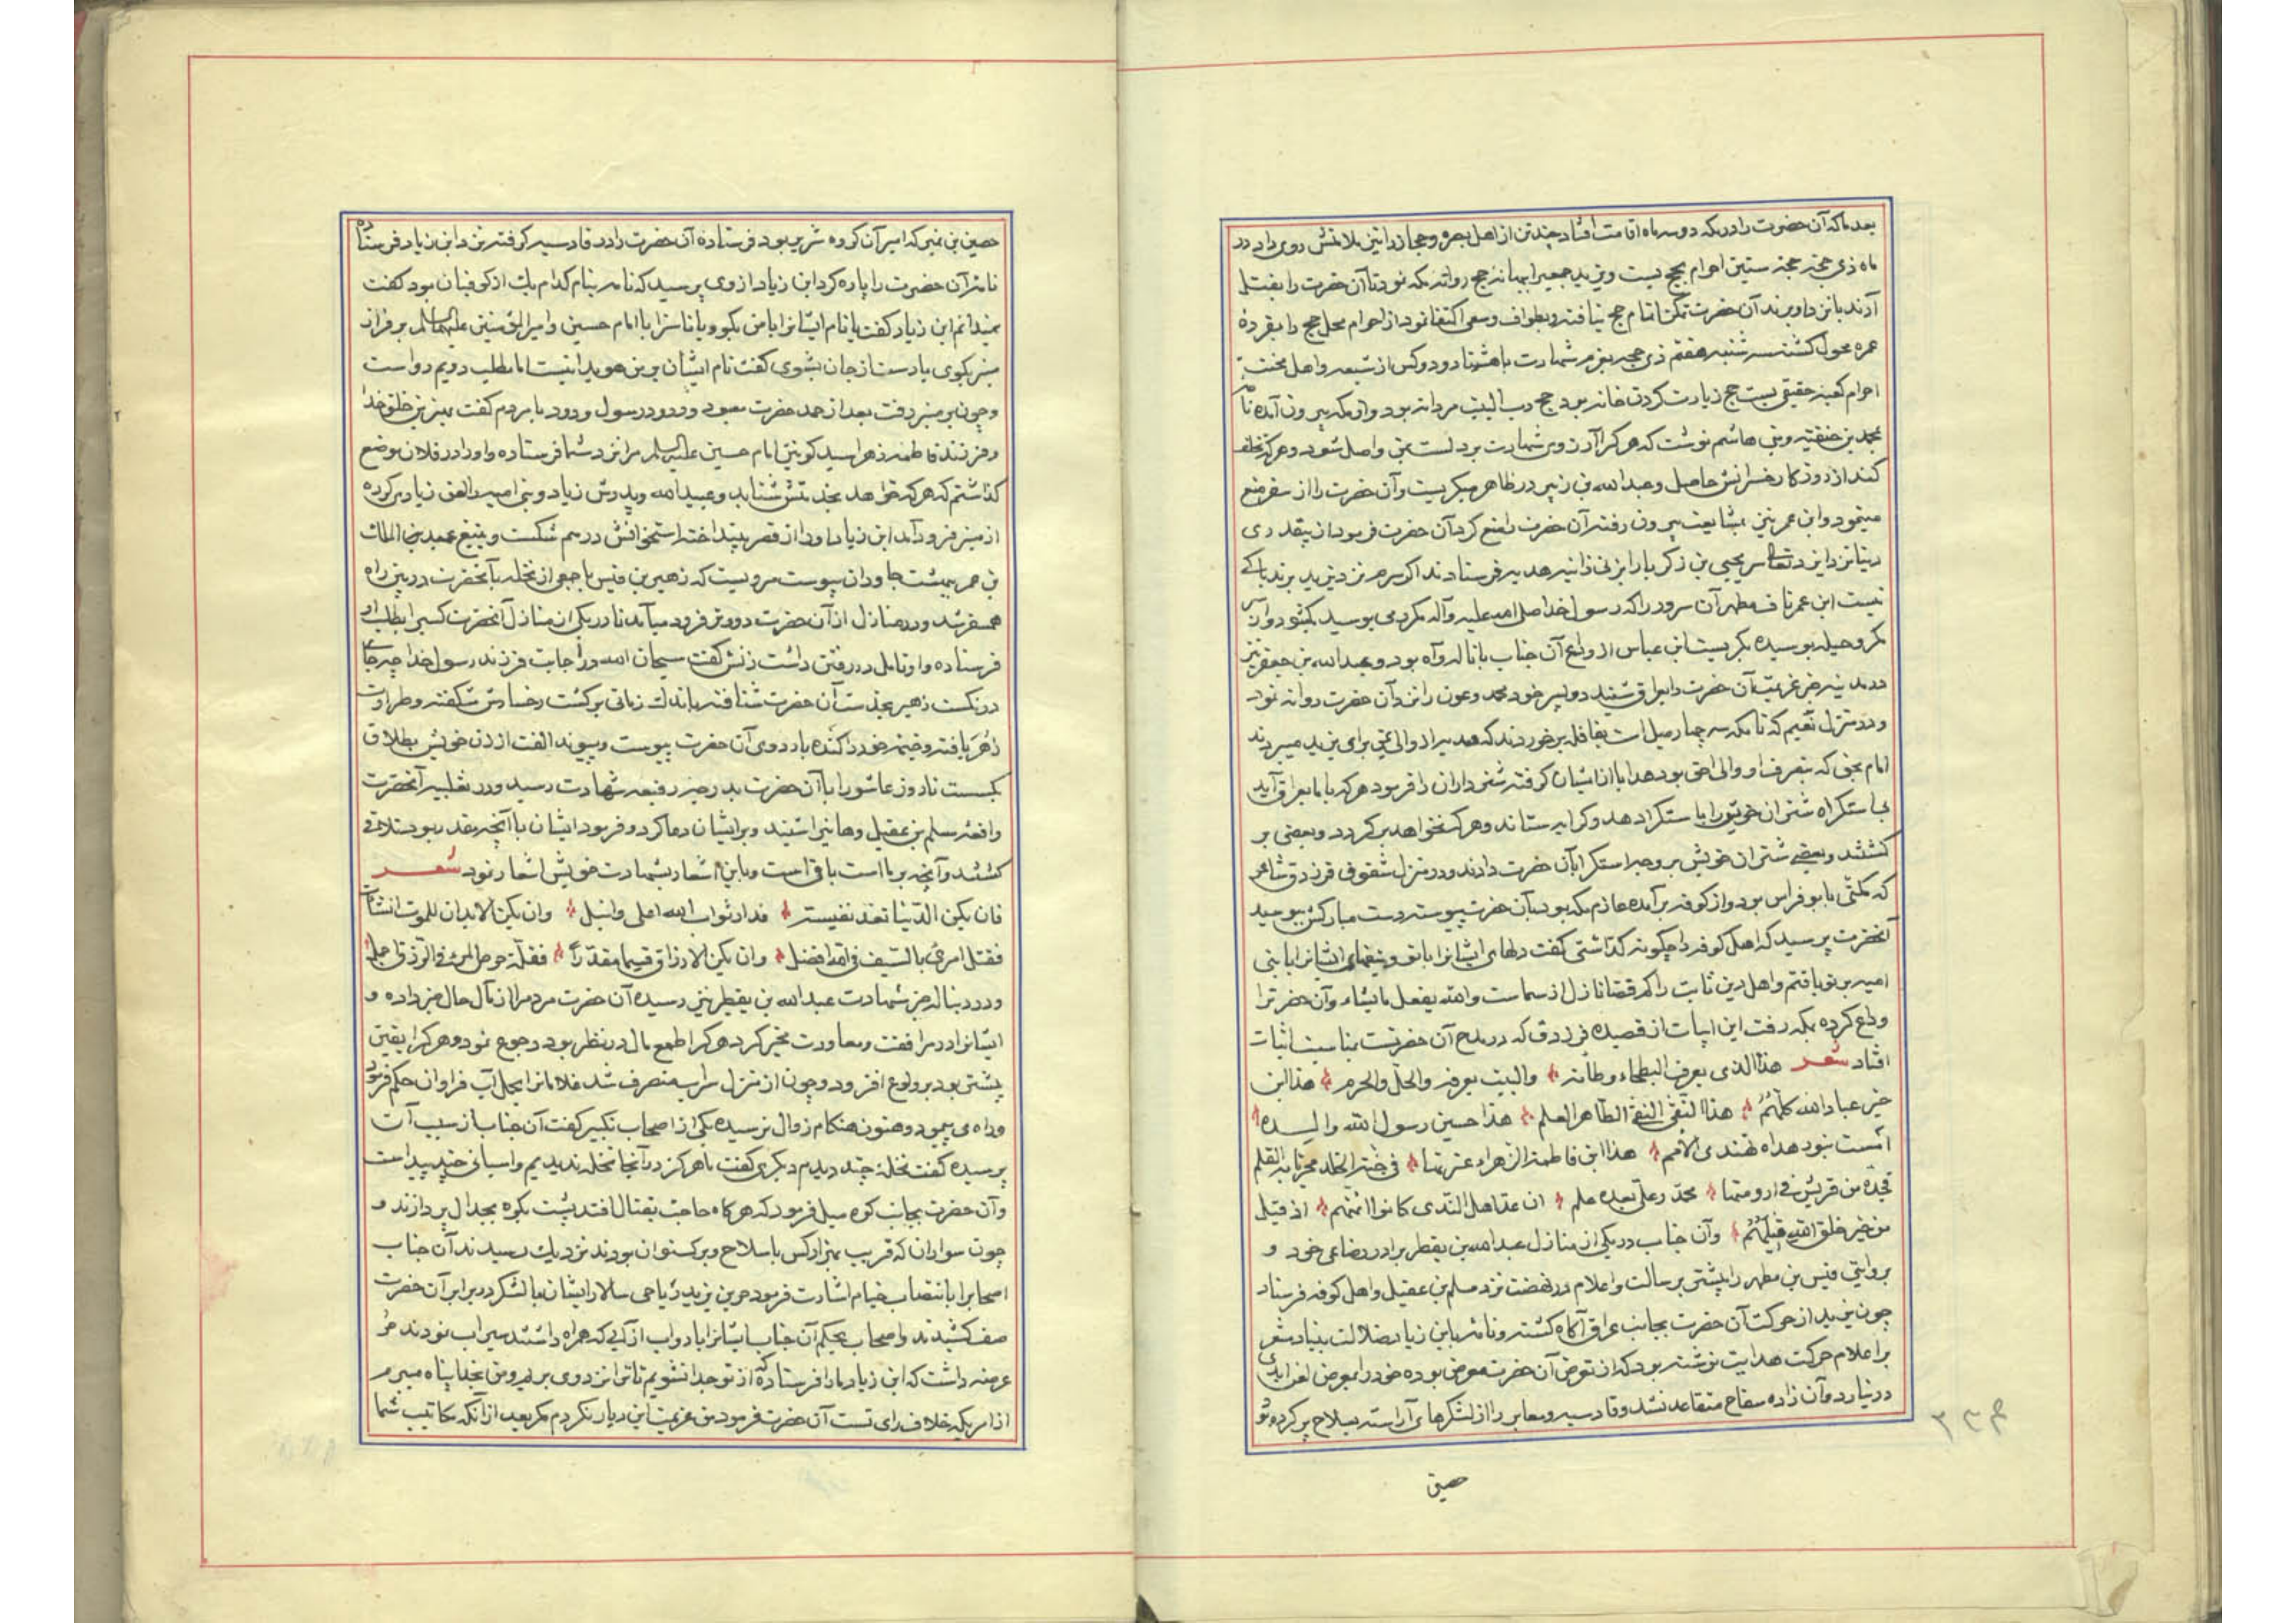 بعد ما که آن حضرت را در مکه دو سه ماه اقامت افتاد چند تن از اهل بصره و حجاز را نیز ملازمتش روی داد در
ماه ذی حجه حجة ستین احرام بحج بست و یزید جمعی را ببهانه حج روانه مکه نمود تا آن حضرت را بقتل
آرند یا نزد او برند آن حضرت تمکن اتمام حج نیافته و بطواف و سعی اکتفا نمود از احرام محل حج را بمفرده
عمره محول گشته سه شنبه هفتم ذی حجه بعزم شهادت با هشتاد و دو کس از شیعه و اهل محبت
احرام کعبه حقیقی بست حج زیارت کردن خانه بود حج رب البیت مردانه بود و از مکه بیرون آمده نامه
بمحمد بن حنفیه و بنی هاشم نوشت که هر که را آرزوی شهادت بر دلست بمن واصل شود و هر که تخلف
کند از روزکار خسرانش حاصل و عبد الله بن زبیر در ظاهر میکریست و آن حضرت را از سفر منع
مینمود و ابن عمر نیز بمشایعت بیرون رفته آن حضرت را منع کرد آن حضرت فرمود از بیقدری
دنیا نزد ایزد تعالی سر یحیی بن زکریا را بزنی زانیه هدیه فرستادند اکر سرم نزد یزید برند باکی
نیست ابن عمر ناف مطهر آن سرور را که رسول خدا صلی الله علیه و آله مکرر می بوسید بکشود و از سر
مکر و حیله بوسیده بکریست ابن عباس از وداع آن جناب با ناله و آه بود و عبد الله بن جعفر نیز
در مدینه خبر عزیمت آن حضرت را بعراق شنید دو پسر خود محمد و عون را نزد آن حضرت روانه نمود
و در منزل تنعیم که تا مکه سه چهار میل است بقافله برخوردند که هدیه از والی یمن برای یزید میبردند
امام بحق که بتصرف او والی احق بود هدایا از ایشان کرفته شتر داران را فرمود هر که با ما بعراق آید
بما ستکراه شتران خویش را باستکرا دهد و کرایه ستاند و هر که نخواهد بر کردد و بعضی بر
کشتند و بعضی شتران خویش بر وجه استکرا بآن حضرت دادند و در منزل شقوق فرزدق شاعر
که مکنّی بابو فراس بود و از کوفه بر آمده عازم مکه بود بآن حضرت پیوسته دست مبارکش ببوسید
آنحضرت پرسید که اهل کوفه را چکونه کذاشتی کفت دلهای ایشانرا با تو و تیغهای ایشانرا با بنی
امیه بر تو یافتم و اهل دین ثابت را کم قضا نازل از سماست والله یفعل ما یشاء و آن حضرت را
وداع کرده بمکه رفت این ابیات از قصیده فرزدق که در مدح آن حضرتست بمناسبت اثبات
افتاد شعر هذا الذی یعرف البطحاء وطأته والبیت یعرفه والحل والحرم هذا ابن
خیر عباد الله کلّهُمُ هذا التّقی النقی الطّاهر العلم هذا حسین رسول الله والده
امست بنور هداه تهتدی الأمم هذا ابن فاطمة الزهراء عترتها فی جنّة الخلد مجریّا به القلم
فجدّه من قریش فی ارومتها محمّد وعلیّ بعده علم ان عدّ اهل النّدی کانوا ائمّتهم او قیل
من خیر خلق الله قیل هُمُ و آن جناب در یکی از منازل عبد الله بن یقطر برادر رضاعی خود و
بروایتی قیس بن مطهر را پیشتر برسالت و اعلام در نهضت نزد مسلم بن عقیل و اهل کوفه فرستاد
چون یزید از حرکت آن حضرت بجانب عراق آکاه کشته و نامه بابن زیاد ضلالت بنیاد مشعر
بر اعلام حرکت هدایت نوشته بود که از تعرض آن حضرت معرض بوده خود را بمعرض لعن ابدی
در نیارد و آن زاده سفاح متقاعد نشد و قادسیه و معابر را از لشکرهای آراسته بسلاح پر کرده بود
حصین
حصین بن نمیر که امیر آن کروه شریر بود فرستاده آن حضرت را در قادسیه کرفته نزد ابن زیاد فرستاده
نامه آن حضرت را پاره کرد ابن زیاد از وی پرسید که نامه بنام کدام یک از کوفیان بود کفت
نمیدانم ابن زیاد کفت یا نام ایشانرا با من بکو و یا ناسزا با امام حسین و امیر المؤمنین علیهما السلام بر فراز
منبر بکوی یا دست از جان بشوی کفت نام ایشان بر من هویدا نیست اما مطلب دویم رواست
و چون بر منبر رفت بعد از حمد حضرت معبود و درود رسول ودود با مردم کفت بهترین خلق خدا
و فرزند فاطمه زهرا سید کونین امام حسین علیه السلام مرا نزد شما فرستاده و او را در فلان موضع
کذاشتم که هر که خواهد بخدمتش شتابد و عبید الله و پدرش زیاد و بنی امیه را لعن زیادی کرده
از منبر فرود آمد ابن زیاد او را از قصر بینداخت استخوانش در هم شکست و بتیغ عبد الملک
بن عمر ببهشت جاودان پیوست مرویست که زهیر بن قیس با جمعی از نخله با آنحضرت در بین راه
همسفر شد و در منازل از آن حضرت دورتر فرود میآمد تا در یکی از منازل آنحضرت کسی را بطلب او
فرستاده و او تامل در رفتن داشت زنش کفت سبحان الله در اجابت فرزند رسول خدا چه جای
درنکست زهیر بخدمت آن حضرت شتافته باندک زمانی برکشت رخسارش شکفته و طراوت
زهر یافته و خیمه خود را کنده باردوی آن حضرت پیوست و پیوند الفت از زن خویش بطلاق
بکسست تا روز عاشورا با آن حضرت بدرجه رفیعه شهادت رسید و در ثعلبیه آنحضرت
واقعه مسلم بن عقیل و هانی را شنید و بر ایشان دعا کرد و فرمود ایشان با آنچه مقدر بود ملاقی
کشتند و آنچه بر ما است باقی است و باین اشعار بشهادت خویش اشعار نمود شعر
فان یکن الدّنیا تعدّ نفیسة فدار ثواب الله اعلی وانبل وان یکن الابدان للموت انشأت
فقتل امرئ بالسّیف فی الله افضل وان یکن الارزاق قسما مقدّراً فقلّة حرص المرء فی الرّزق اجمل
و در دنباله خبر شهادت عبد الله بن یقطر نیز رسیده آن حضرت مردم را از مآل حال خبر داده و
ایشانرا در مرافقت و معاودت مخیر کرد هر که را طمع مال در نظر بود رجوع نمود و هر که را یقین
پیشتر بود بر ولوع افزود و چون از منزل سراب منصرف شد غلامانرا بحمل آب فراوان حکم فرمود
و راه می پیمود و هنوز هنکام زوال نرسیده یکی از اصحاب تکبیر کفت آن جناب از سبب آن
پرسیده کفت نخلهٔ چند دیدم دیکری کفت ما هرکز در آنجا نخله ندیدیم و اسبانی چند پیداست
و آن حضرت بجانب کوه میل فرمود که هر کاه حاجت بقتال افتد پشت بکوه بجدال پردازند و
چون سواران که قریب بهزار کس با سلاح و بر کستوان بودند نزدیک رسیدند آن جناب
اصحابرا بانتصاب خیام اشارت فرمود حر بن یزید ریاحی سالار ایشان با لشکر در برابر آن حضرت
صف کشیدند و اصحاب بحکم آن جناب ایشانرا با دواب از آبی که همراه داشتند سیراب نمودند حر
عرضه داشت که ابن زیاد ما را فرستاده که از تو جدا نشویم تا ترا نزد وی بریم و من بخدا پناه میبرم
از امریکه خلاف رای تست آن حضرت فرمود من عزیمت این دیار نکردم مکر بعد از آنکه مکاتیب شما